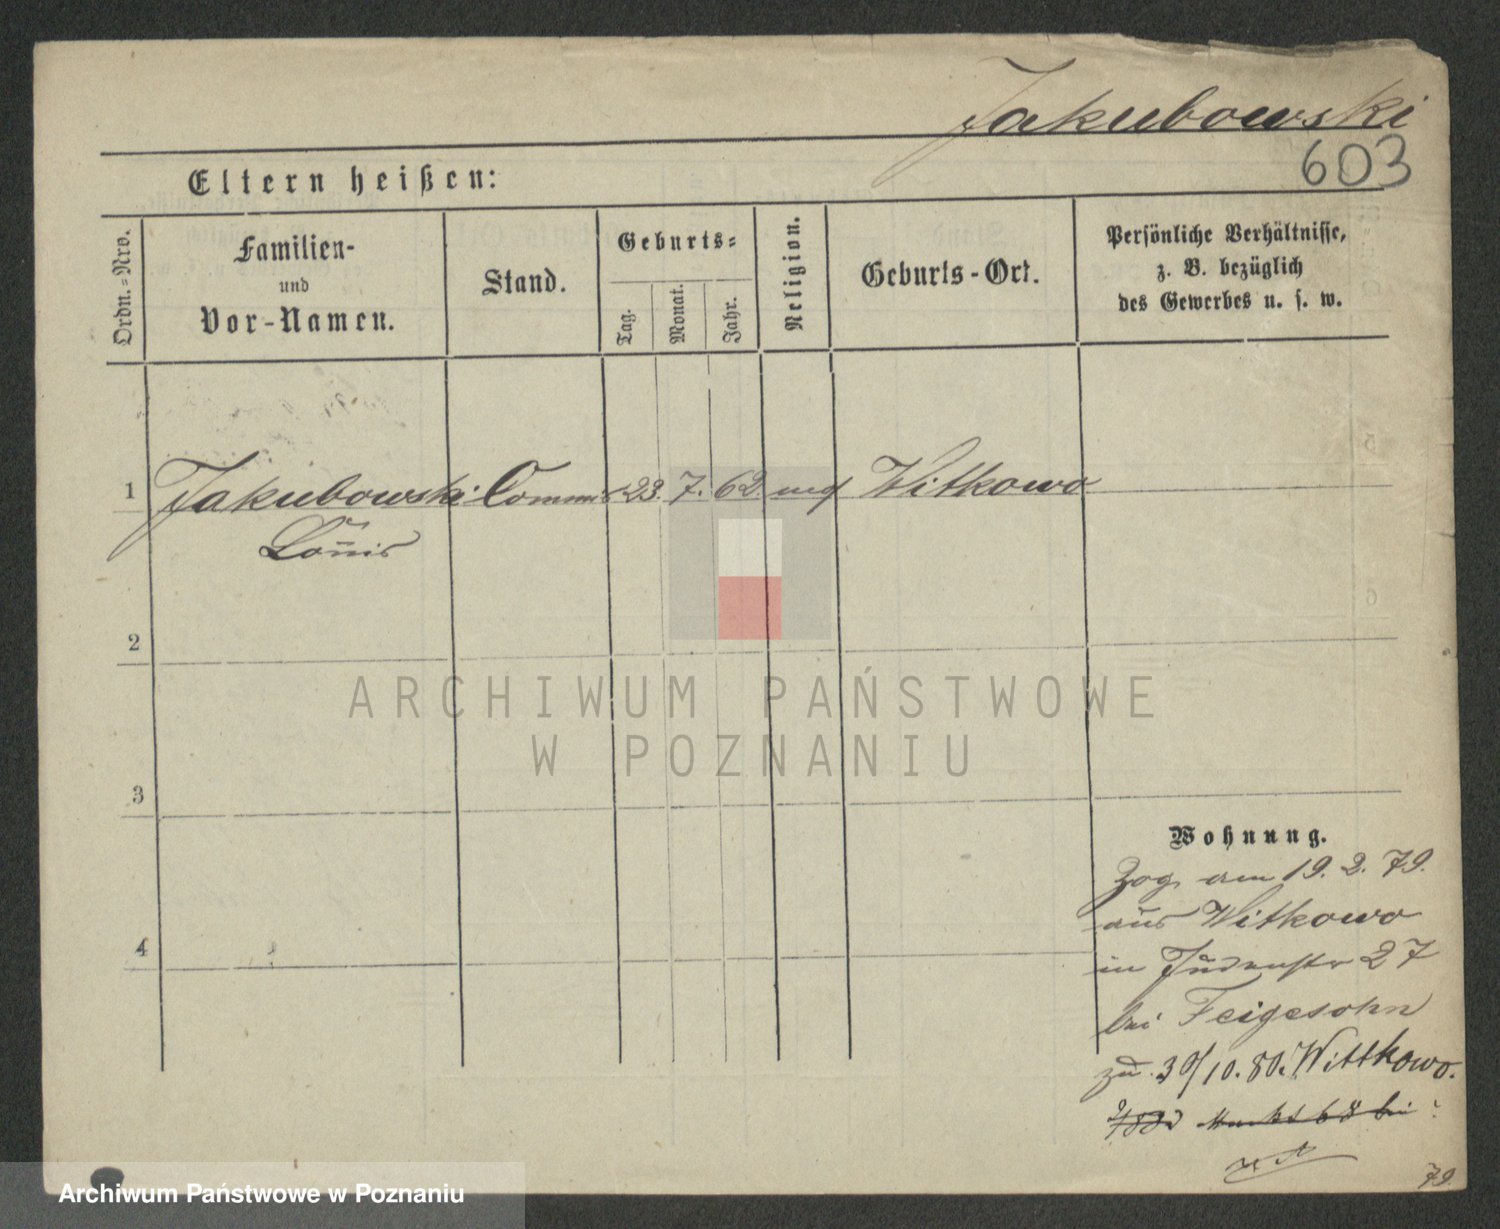 Jakubowski
603
Eltern heißen:
Ordn.-Nro.
Familien-
und
Vor-Namen.
Stand.
Geburts-
Tag.
Monat.
Jahr.
Religion.
Geburts-Ort.
Persönliche Verhältnisse,
z. B. bezüglich
des Gewerbes u. s. w.
1 Jakubowski Commis 23. 7. 62 Witkowo
Louis
2
3
4
Wohnung.
Zog am 19. 2. 79.
aus Witkowo
in Judenstr 27
bei Feigesohn
zu. 30/10. 80. Wittkowo.
79.
ARCHIWUM PAŃSTWOWE
W POZNANIU
Archiwum Państwowe w Poznaniu